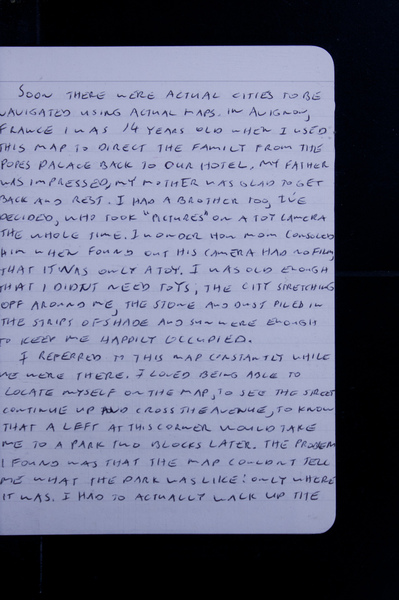 SOON THERE WERE ACTUAL CITIES TO BE
NAVIGATED USING ACTUAL MAPS. IN AVIGNON,
FRANCE I WAS 14 YEARS OLD WHEN I USED
THIS MAP TO DIRECT THE FAMILY FROM THE
POPES PALACE BACK TO OUR HOTEL. MY FATHER
WAS IMPRESSED, MY MOTHER WAS GLAD TO GET
BACK AND REST. I HAD A BROTHER TOO, I'VE
DECIDED, WHO TOOK "PICTURES" ON A TOY CAMERA
THE WHOLE TIME. I WONDER HOW MOM CONSOLED
HIM WHEN FOUND OUT HIS CAMERA HAD NO FILM,
THAT IT WAS ONLY A TOY. I WAS OLD ENOUGH
THAT I DIDNT NEED TOYS; THE CITY STRETCHING
OFF AROUND ME, THE STONE AND DUST PILED IN
THE STRIPS OF SHADE AND SUN WERE ENOUGH
TO KEEP ME HAPPILY OCCUPIED.
I REFERRED TO THIS MAP CONSTANTLY WHILE
WE WERE THERE. I LOVED BEING ABLE TO
LOCATE MYSELF ON THE MAP, TO SEE THE STREET
CONTINUE UP AND CROSS THE AVENUE, TO KNOW
THAT A LEFT AT THIS CORNER WOULD TAKE
ME TO A PARK TWO BLOCKS LATER. THE PROBLEM
I FOUND WAS THAT THE MAP COULDN'T TELL
ME WHAT THE PARK WAS LIKE: ONLY WHERE
IT WAS. I HAD TO ACTUALLY WALK UP THE